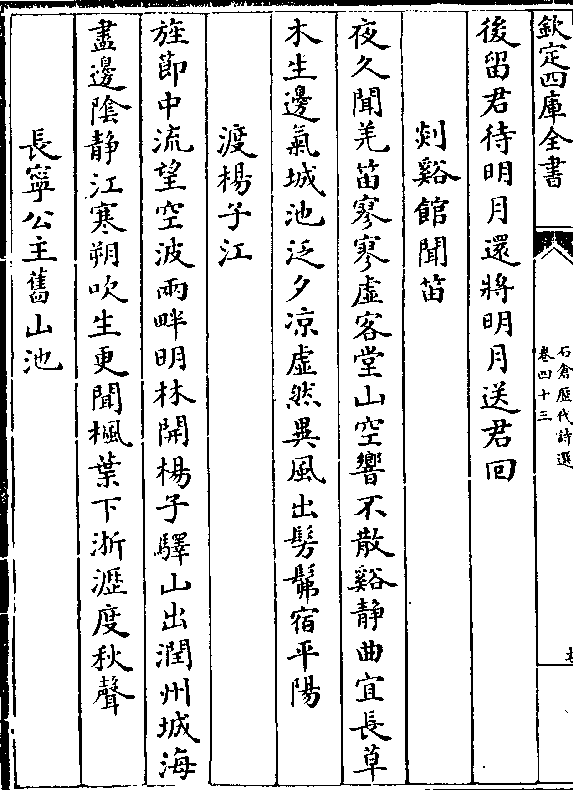 欽定四庫全書
石倉歷代詩選
卷四十三
後留君待明月還將明月送君回
剡谿館聞笛
夜久聞羌笛寥寥虛客堂山空響不散谿静曲宜長草
木生邊氣城池泛夕凉虛然異風出髣髴宿平陽
渡楊子江
旌節中流望空波兩畔明林開楊子驛山出潤州城海
盡邊陰静江寒朔吹生更聞楓葉下淅瀝度秋聲
長寧公主舊山池